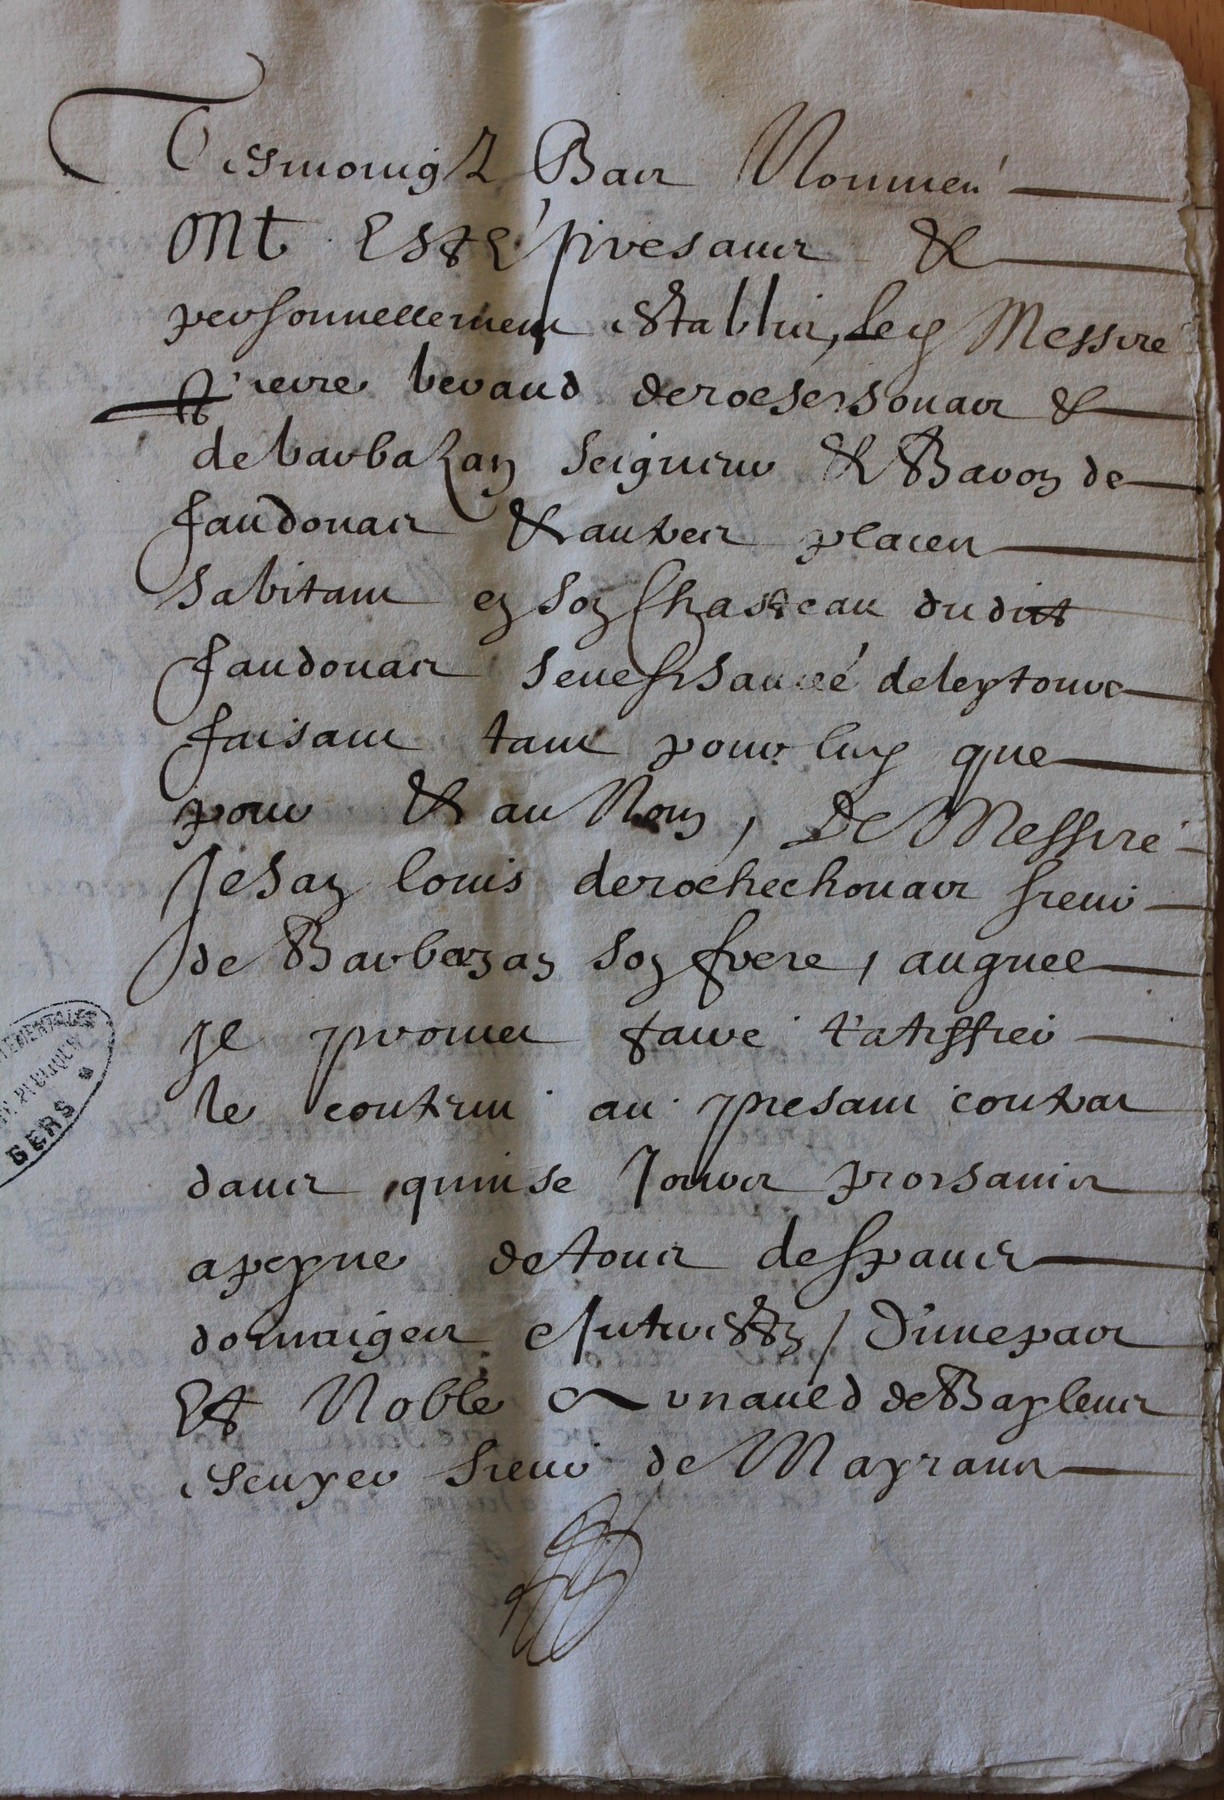 Tesmoingz Bas Nommés
ont esté presans &
personnellement establis, Le sr Messire
Pierre beraud derochechouart &
de barbazan Seigneur & Baron de
faudouas & autres places
habitant en son Chasteau dudit
faudouas seneschaucée deleytoure
faisant tant pour luy que
pour & au Nom, De Messire
Jehan louis derochechouart sieur
de Barbazan son frere, auquel
Je promet faire ratiffier
le contenu au present contrat
dans quinse Jours prochains
apeyne detous despans
domaiges Interestz / D'unepart
Et Noble Arnauld deBaylens
escuyer sieur de Mayrans
DEPARTEMENTALES
GERS